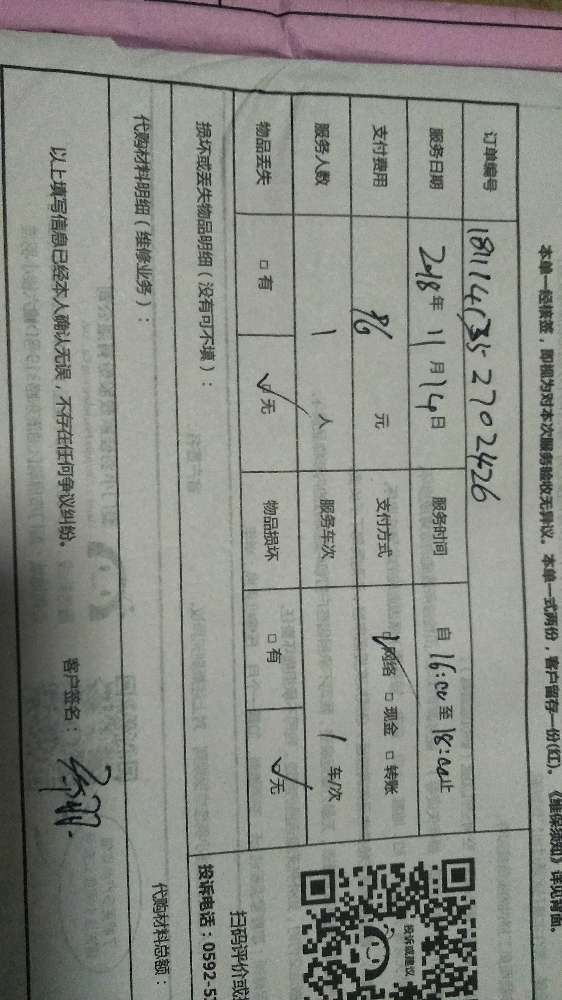 本单一经核签，即视为对本次服务验收无异议。本单一式两份，客户留存一份(红)。《维保须知》详见背面。
订单编号 181114135 2702426
服务日期 2018年 11月 14日 服务时间 自 16:00 至 18:00 止
支付费用 86 元 支付方式 ☑网络 □现金 □转账
服务人数 1 人 服务车次 1 车/次
物品丢失 □有 ☑无 物品损坏 □有 ☑无
损坏或丢失物品明细（没有可不填）：
代购材料明细（维修业务）：
代购材料总额：
以上填写信息已经本人确认无误，不存在任何争议纠纷。 客户签名：
投诉或建议
扫码评价或
投诉电话：0592-5